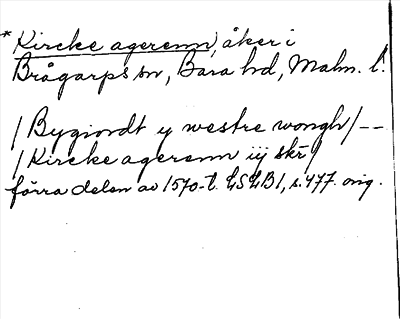 *Kircke agerenn, åker i
Brågarps sn, Bara hd, Malm. l.
/Bygiordt y westre wongh/--
/Kircke agerenn iij skr/
förra delen av 1570-t. LSLB1, s. 477. orig.